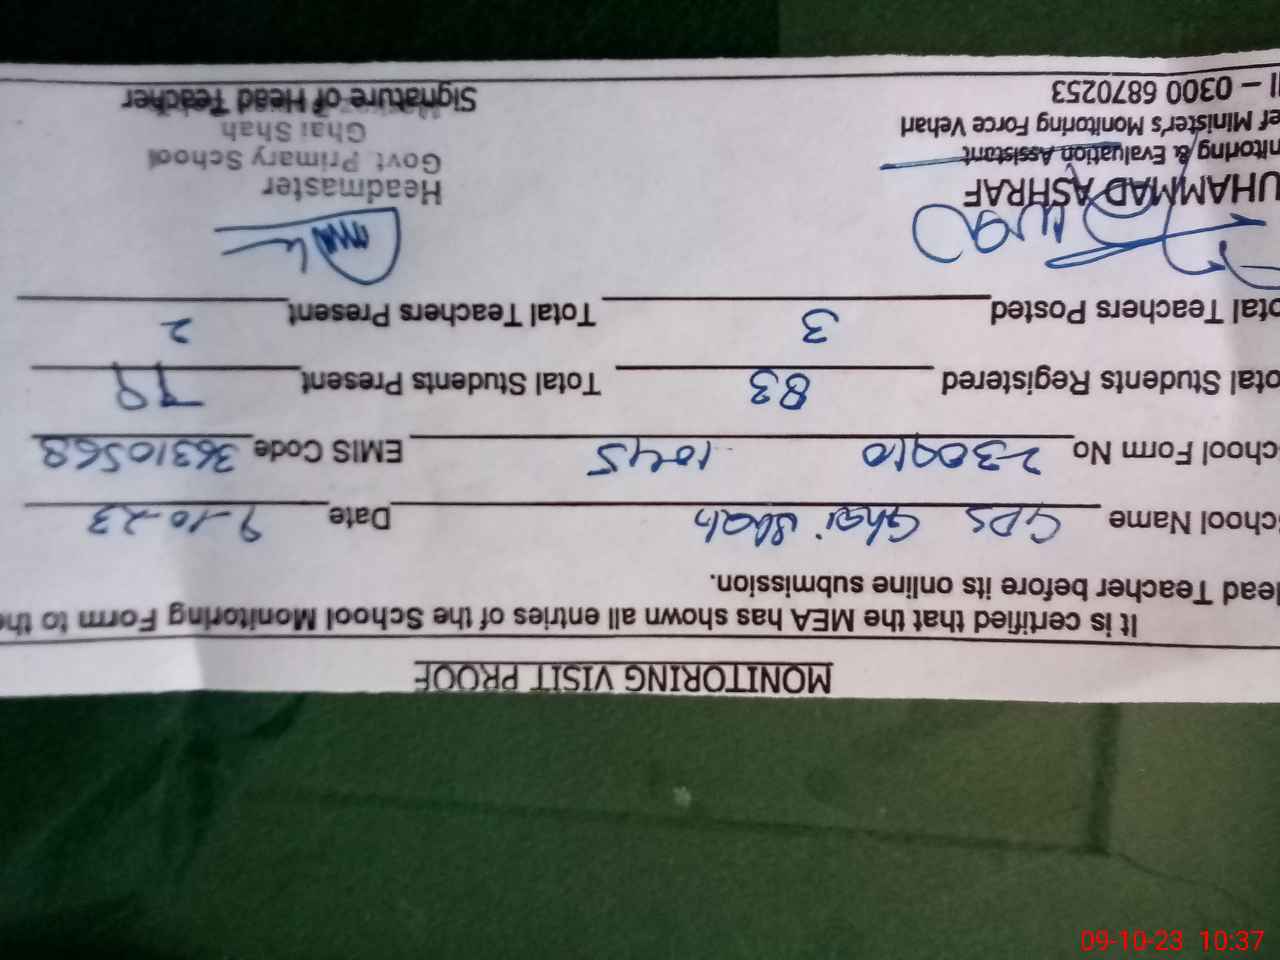 MONITORING VISIT PROOF
It is certified that the MEA has shown all entries of the School Monitoring Form to the
Head Teacher before its online submission.
School Name GPS Ghai Shah Date 9-10-23
School Form No 230910 1045 EMIS Code 36310568
Total Students Registered 83 Total Students Present 79
Total Teachers Posted 3 Total Teachers Present 2
UHAMMAD ASHRAF
nitoring & Evaluation Assistant
ef Minister's Monitoring Force Vehari
ll – 0300 6870253
Headmaster
Govt. Primary School
Ghai Shah
Signature of Head Teacher
09-10-23 10:37